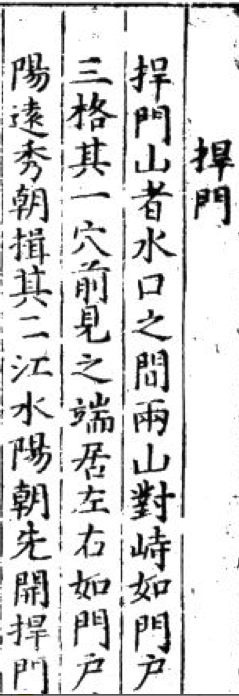 捍門
捍門山者水口之間兩山對峙如門戶
三格其一穴前見之端居左右如門戶
陽遠秀朝揖其二江水陽朝先開捍門